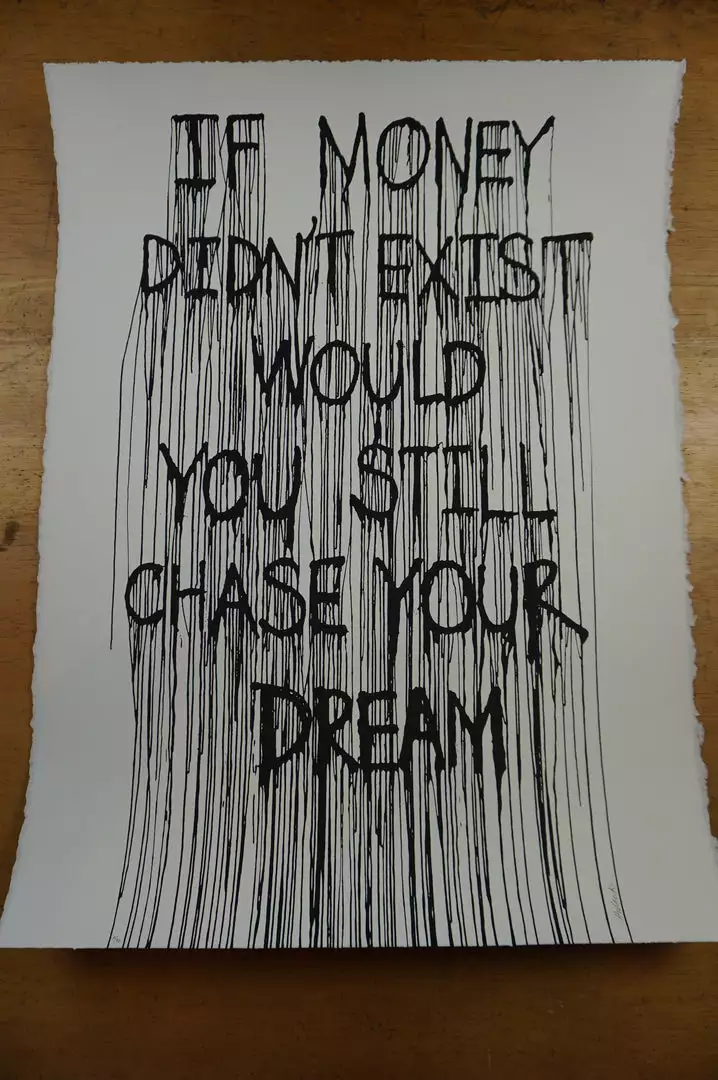 IF MONEY
DIDN'T EXIST
WOULD
YOU STILL
CHASE YOUR
DREAM